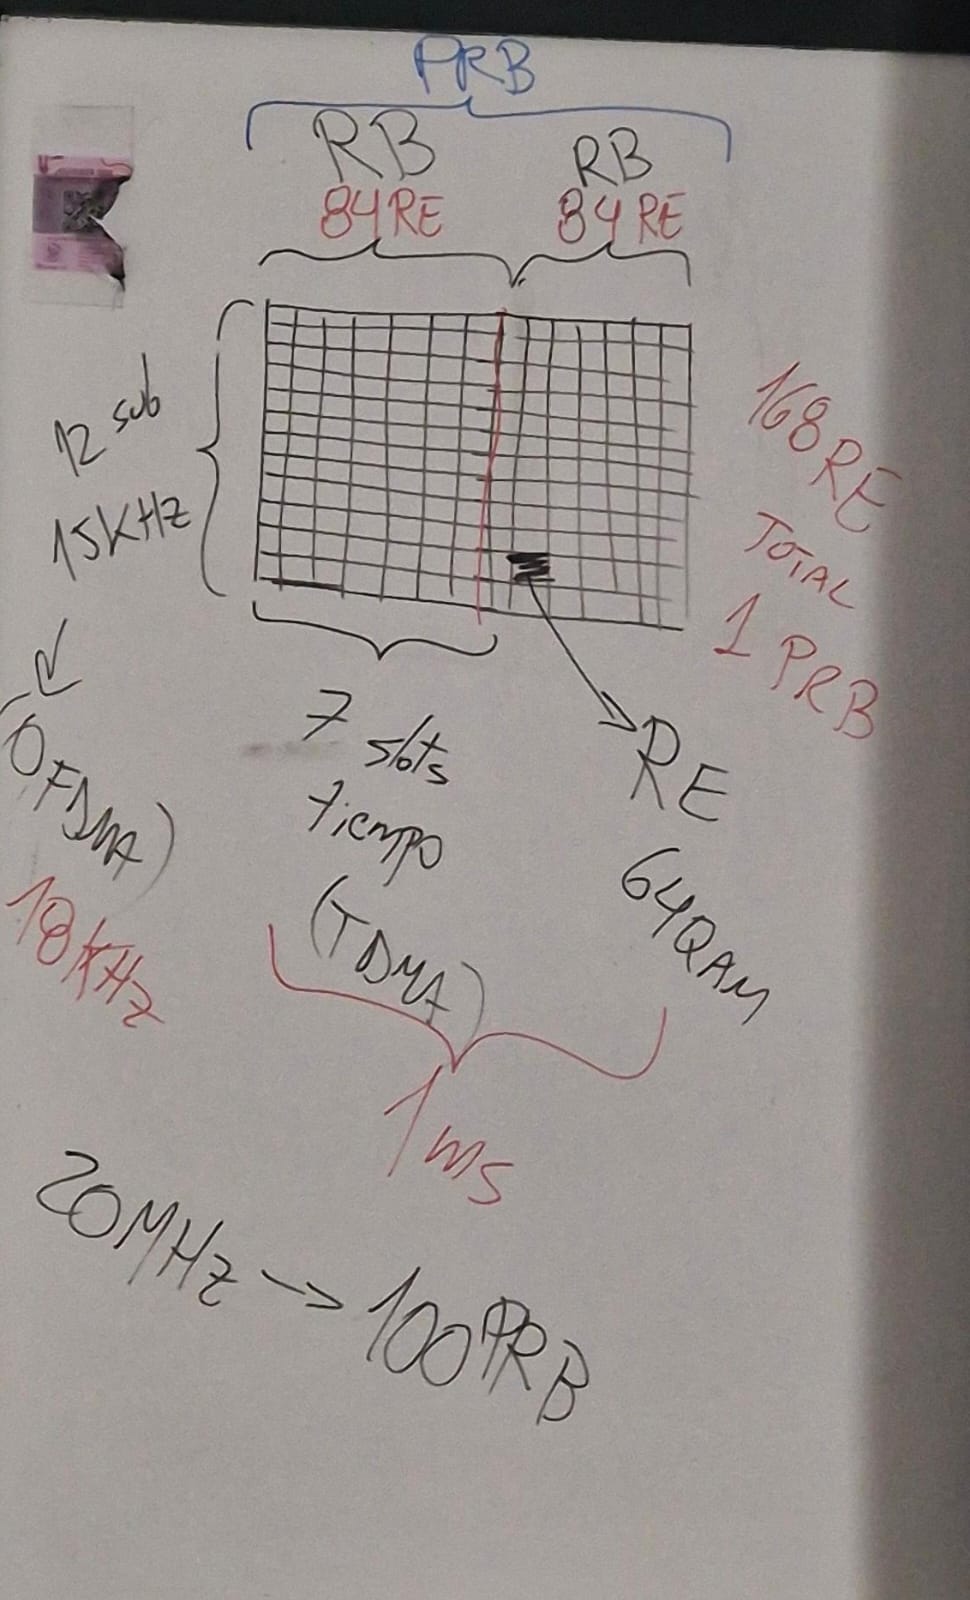 PRB
RB
RB
84RE
84 RE
12 sub
15KHz
(OFDMA)
18KHz
7 slots
tiempo
(TDMA)
1ms
RE
64QAM
168RE
TOTAL
1 PRB
20MHz → 100PRB